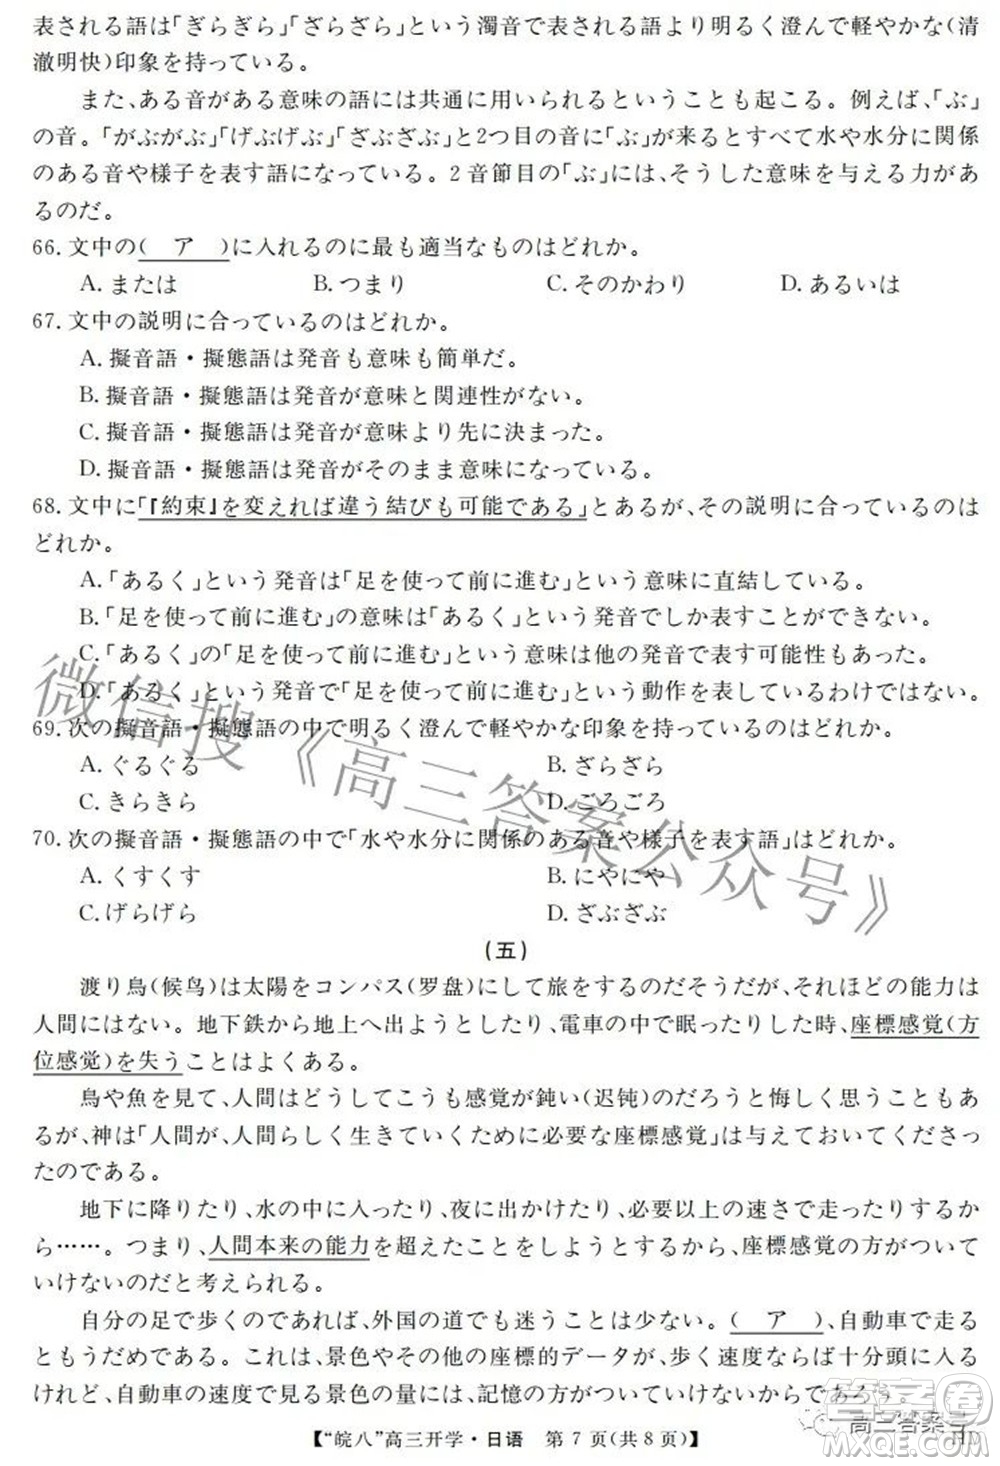 表される語は「ぎらぎら」「ざらざら」という濁音で表される語より明るく澄んで軽やかな(清
澈明快)印象を持っている。
また、ある音がある意味の語には共通に用いられるということも起こる。例えば、「ぶ」
の音。「がぶがぶ」「げぶげぶ」「ざぶざぶ」と2つ目の音に「ぶ」が来るとすべて水や水分に関係
のある音や様子を表す語になっている。2音節目の「ぶ」には、そうした意味を与える力があ
るのだ。
66. 文中の( ア )に入れるのに最も適当なものはどれか。
A. または B. つまり C. そのかわり D. あるいは
67. 文中の説明に合っているのはどれか。
A. 擬音語・擬態語は発音も意味も簡単だ。
B. 擬音語・擬態語は発音が意味と関連性がない。
C. 擬音語・擬態語は発音が意味より先に決まった。
D. 擬音語・擬態語は発音がそのまま意味になっている。
68. 文中に「『約束』を変えれば違う結びも可能である」とあるが、その説明に合っているのは
どれか。
A. 「あるく」という発音は「足を使って前に進む」という意味に直結している。
B. 「足を使って前に進む」の意味は「あるく」という発音でしか表すことができない。
C. 「あるく」の「足を使って前に進む」という意味は他の発音で表す可能性もあった。
D. 「あるく」という発音で「足を使って前に進む」という動作を表しているわけではない。
69. 次の擬音語・擬態語の中で明るく澄んで軽やかな印象を持っているのはどれか。
A. ぐるぐる B. ざらざら
C. きらきら D. ごろごろ
70. 次の擬音語・擬態語の中で「水や水分に関係のある音や様子を表す語」はどれか。
A. くすくす B. にやにや
C. げらげら D. ざぶざぶ
(五)
渡り鳥(候鸟)は太陽をコンパス(罗盘)にして旅をするのだそうだが、それほどの能力は
人間にはない。地下鉄から地上へ出ようとしたり、電車の中で眠ったりした時、座標感覚(方
位感覚)を失うことはよくある。
鳥や魚を見て、人間はどうしてこうも感覚が鈍い(迟钝)のだろうと悔しく思うこともあ
るが、神は「人間が、人間らしく生きていくために必要な座標感覚」は与えておいてくださっ
たのである。
地下に降りたり、水の中に入ったり、夜に出かけたり、必要以上の速さで走ったりするか
ら……。つまり、人間本来の能力を超えたことをしようとするから、座標感覚の方がついて
いけないのだと考えられる。
自分の足で歩くのであれば、外国の道でも迷うことは少ない。( ア )、自動車で走る
ともうだめである。これは、景色やその他の座標的データが、歩く速度ならば十分頭に入る
けれど、自動車の速度で見る景色の量には、記憶の方がついていけないからであろう。
【“皖八”高三开学·日语 第7页(共8页)】 HD
微信搜《高三答案公众号》
高三答案号
答案圈
MXQE.COM